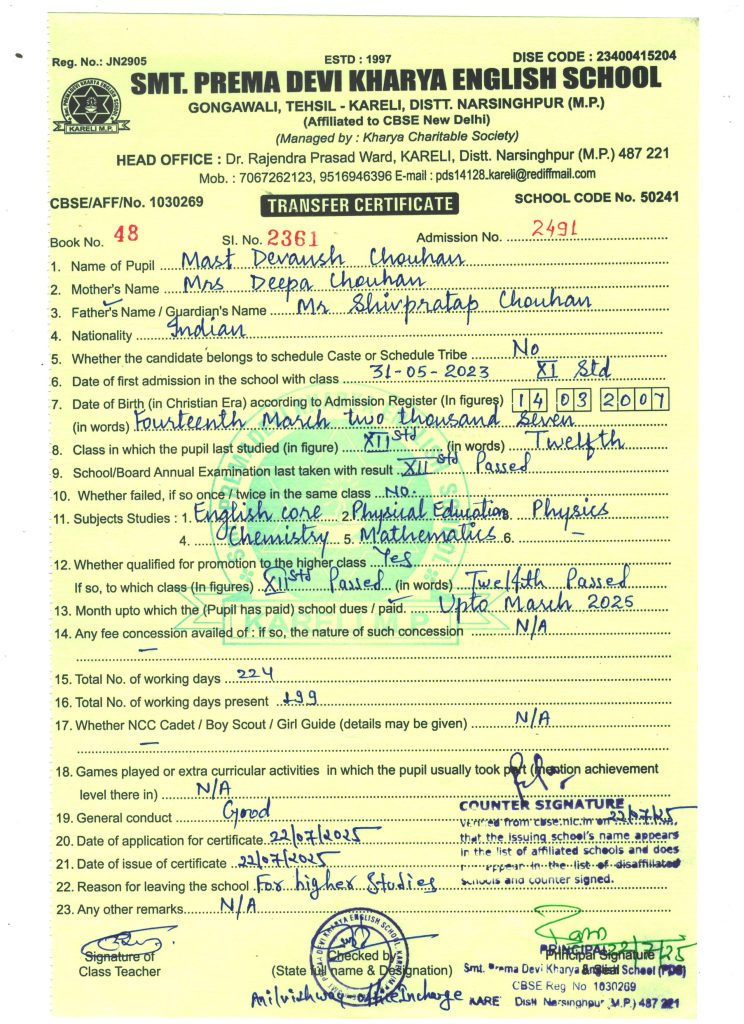 Reg. No.: JN2905 ESTD : 1997 DISE CODE : 23400415204
SMT. PREMA DEVI KHARYA ENGLISH SCHOOL
GONGAWALI, TEHSIL - KARELI, DISTT. NARSINGHPUR (M.P.)
(Affiliated to CBSE New Delhi)
(Managed by : Kharya Charitable Society)
KARELI M.P.
HEAD OFFICE : Dr. Rajendra Prasad Ward, KARELI, Distt. Narsinghpur (M.P.) 487 221
Mob. : 7067262123, 9516946396 E-mail : pds14128.kareli@rediffmail.com
CBSE/AFF/No. 1030269 TRANSFER CERTIFICATE SCHOOL CODE No. 50241
Book No. 48 Sl. No. 2361 Admission No. 2491
1. Name of Pupil Mast Devansh Chouhan
2. Mother's Name Mrs Deepa Chouhan
3. Father's Name / Guardian's Name Mr Shivpratap Chouhan
4. Nationality Indian
5. Whether the candidate belongs to schedule Caste or Schedule Tribe No
6. Date of first admission in the school with class 31-05-2023 XI Std
7. Date of Birth (in Christian Era) according to Admission Register (In figures) 14 03 2007
(in words) Fourteenth March two thousand seven
8. Class in which the pupil last studied (in figure) XII Std (in words) Twelfth
9. School/Board Annual Examination last taken with result XII Std Passed
10. Whether failed, if so once / twice in the same class NO.
11. Subjects Studies : 1. English core 2. Physical Education 3. Physics
4. Chemistry 5. Mathematics 6. –
12. Whether qualified for promotion to the higher class Yes
If so, to which class (In figures) XII Std Passed (in words) Twelfth Passed
13. Month upto which the (Pupil has paid) school dues / paid. Upto March 2025
14. Any fee concession availed of : if so, the nature of such concession N/A
–
15. Total No. of working days 224
16. Total No. of working days present 199
17. Whether NCC Cadet / Boy Scout / Girl Guide (details may be given) N/A
–
18. Games played or extra curricular activities in which the pupil usually took part (mention achievement
level there in) N/A
19. General conduct Good
COUNTER SIGNATURE
Verified from cbse.nic.in on 22/07/25
20. Date of application for certificate 22/07/2025
that the issuing school's name appears
in the list of affiliated schools and does
21. Date of issue of certificate 22/07/2025
appear in the list of disaffiliated
22. Reason for leaving the school For higher Studies
schools and counter signed.
23. Any other remarks N/A
Signature of
Class Teacher
Checked by
(State full name & Designation)
office Incharge
Principal Signature
PRINCIPAL 22/7/25
Smt. Prema Devi Kharya English School (PDS)
CBSE Reg No 1030269
KARE Distt Narsinghpur (M.P.) 487 221